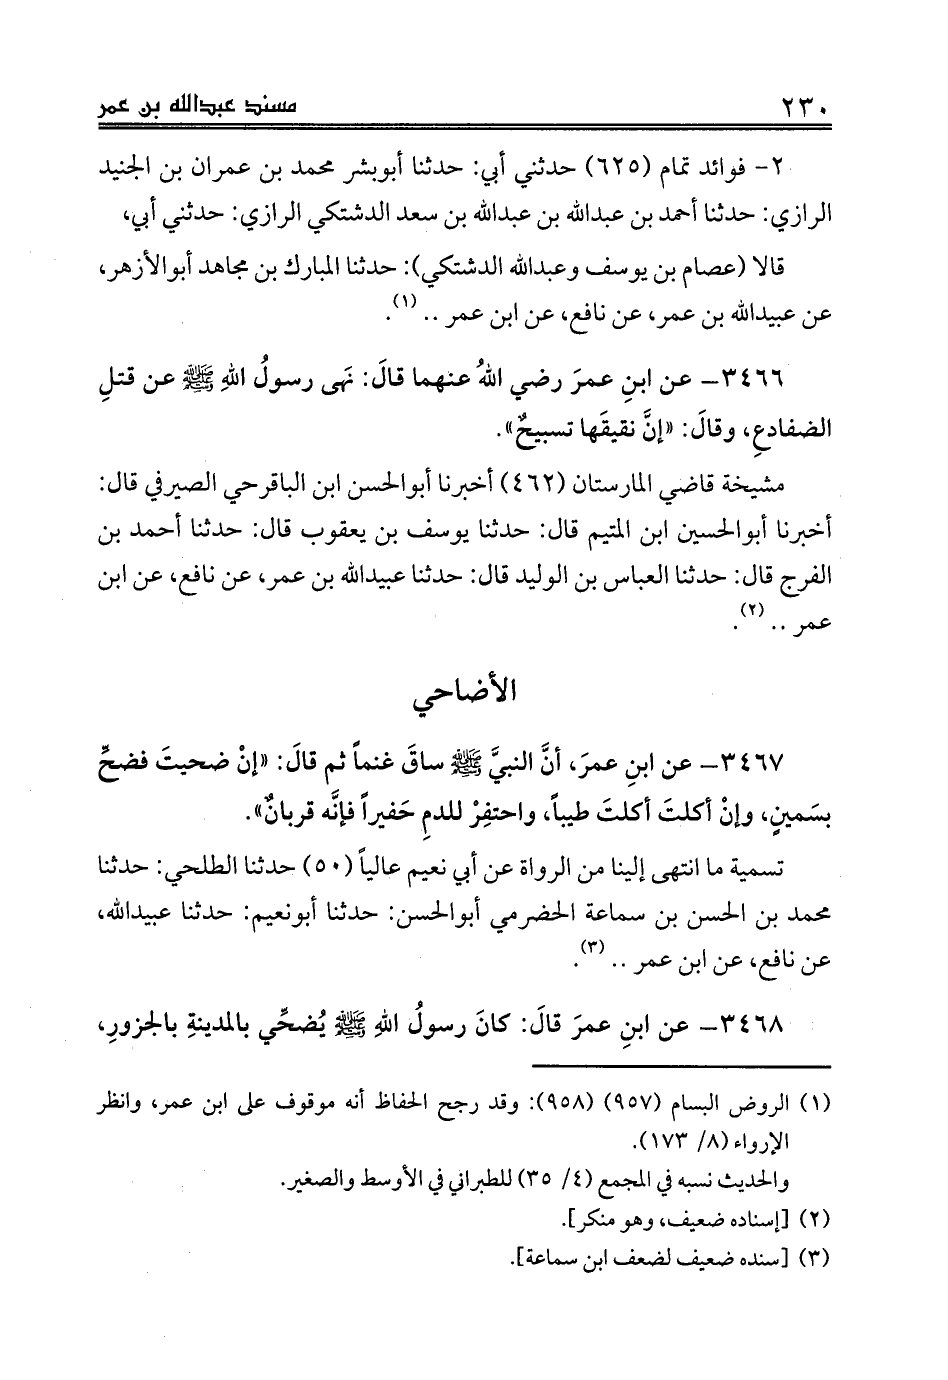 ٢٣٠ مسند عبدالله بن عمر
٢- فوائد تمام (٦٢٥) حدثني أبي: حدثنا أبوبشر محمد بن عمران بن الجنيد
الرازي: حدثنا أحمد بن عبدالله بن عبدالله بن سعد الدشتكي الرازي: حدثني أبي،
قالا (عصام بن يوسف وعبدالله الدشتكي): حدثنا المبارك بن مجاهد أبوالأزهر،
عن عبيدالله بن عمر، عن نافع، عن ابن عمر .. (١).
٣٤٦٦- عن ابنِ عمرَ رضي اللهُ عنهما قالَ: نَهى رسولُ اللهِ ﷺ عن قتلِ
الضفادعِ، وقالَ: «إنَّ نقيقَها تسبيحٌ».
مشيخة قاضي المارستان (٤٦٢) أخبرنا أبوالحسن ابن الباقرحي الصيرفي قال:
أخبرنا أبوالحسين ابن المتيم قال: حدثنا يوسف بن يعقوب قال: حدثنا أحمد بن
الفرج قال: حدثنا العباس بن الوليد قال: حدثنا عبيدالله بن عمر، عن نافع، عن ابن
عمر .. (٢).
الأضاحي
٣٤٦٧- عن ابنِ عمرَ، أنَّ النبيَّ ﷺ ساقَ غنماً ثم قالَ: «إنْ ضحيتَ فضحِّ
بسَمينٍ، وإنْ أكلتَ أكلتَ طيباً، واحتفِرْ للدمِ حَفيراً فإنَّه قربانٌ».
تسمية ما انتهى إلينا من الرواة عن أبي نعيم عالياً (٥٠) حدثنا الطلحي: حدثنا
محمد بن الحسن بن سماعة الحضرمي أبوالحسن: حدثنا أبونعيم: حدثنا عبيدالله،
عن نافع، عن ابن عمر .. (٣).
٣٤٦٨- عن ابنِ عمرَ قالَ: كانَ رسولُ اللهِ ﷺ يُضحِّي بالمدينةِ بالجزورِ،
(١) الروض البسام (٩٥٧) (٩٥٨): وقد رجح الحفاظ أنه موقوف على ابن عمر، وانظر
الإرواء (٨/ ١٧٣).
والحديث نسبه في المجمع (٤/ ٣٥) للطبراني في الأوسط والصغير.
(٢) [إسناده ضعيف، وهو منكر].
(٣) [سنده ضعيف لضعف ابن سماعة].